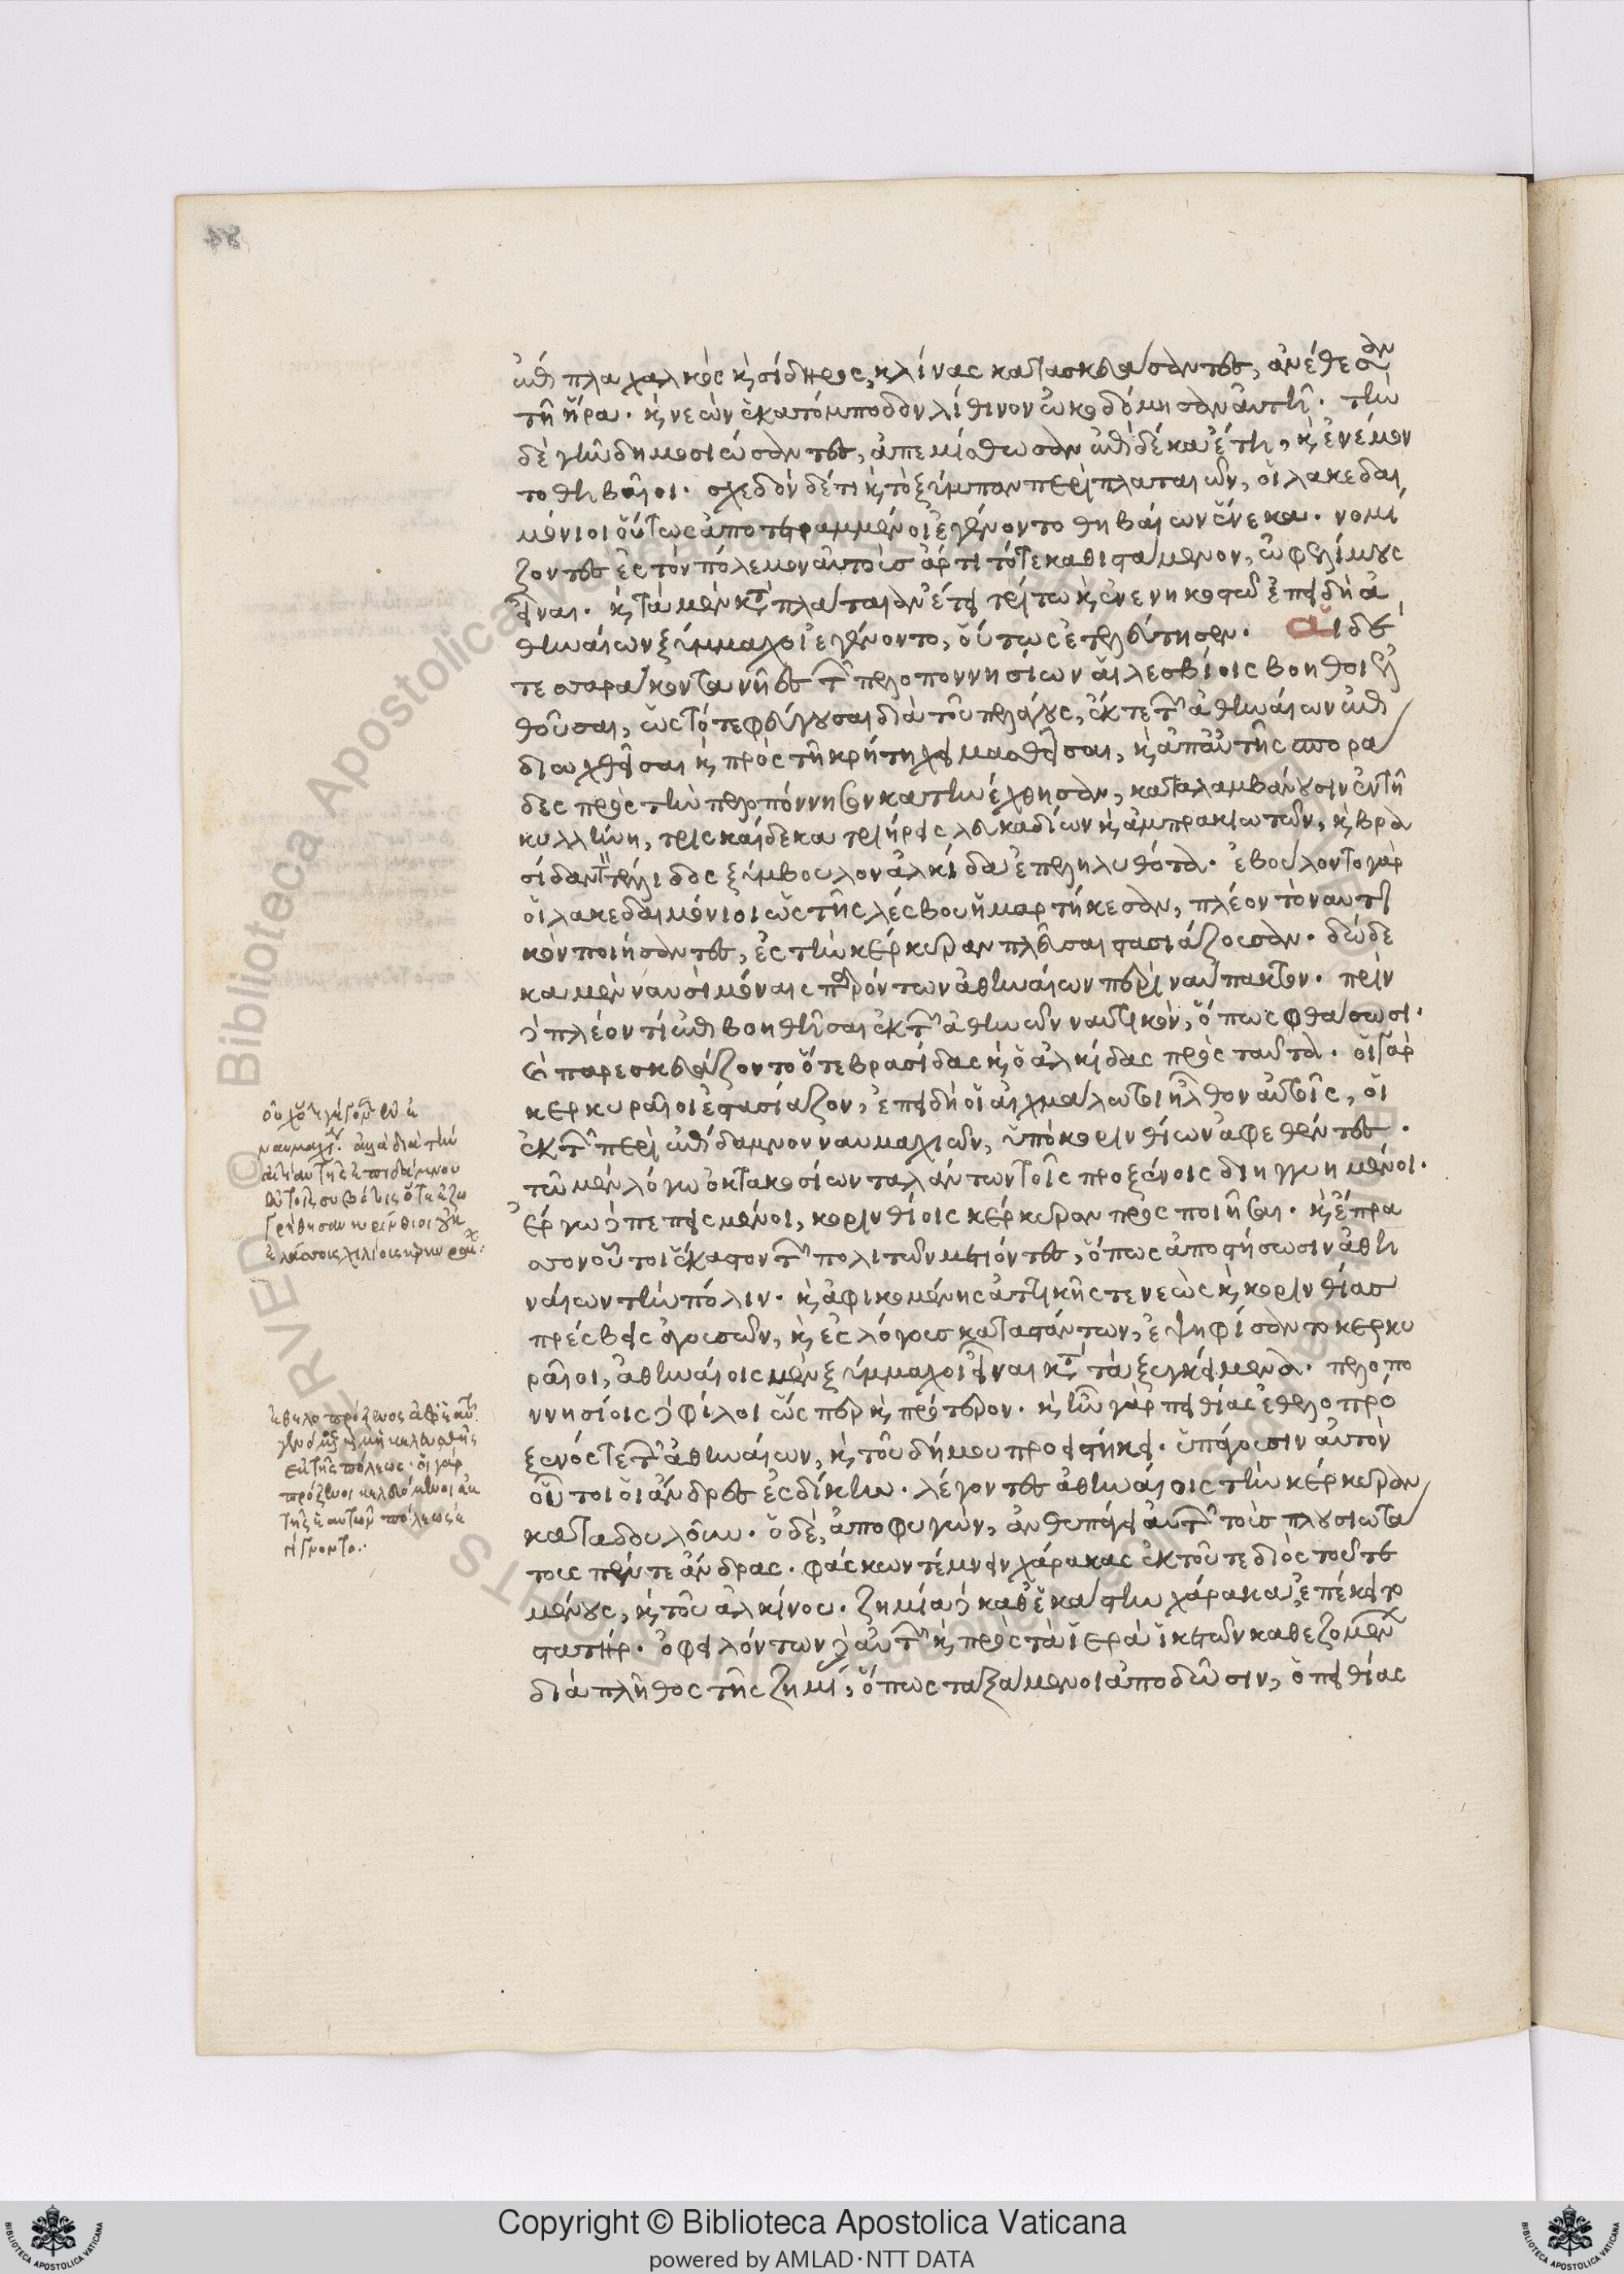 ἔπιπλα χαλκὸς καὶ σίδηρος, κλίνας κατασκευάσαντες, ἀνέθεσαν
τῇ ἥρα. καὶ νεὼν ἑκατόμποδον λίθινον ὠκοδόμησαν αὐτῆ. τὴν
δὲ γῆν δημοσιώσαντες, ἀπεμίσθωσαν ἐπὶ δέκα ἔτη, καὶ ἐνέμον
το θηβαῖοι. σχεδὸν δέ τι καὶ τὸ ξύμπαν περὶ πλαταιῶν, οἱ λακεδαι
μόνιοι οὕτως ἀποτετραμμένοι ἐγένοντο θηβαίων ἕνεκα. νομί
ζοντες ἐς τὸν πόλεμον αὐτοὺς ἄρτι τότε καθιστάμενον, ὠφελίμους
εἶναι. καὶ τὰ μὲν κατὰ πλάταιαν ἔτει τρίτω καὶ ἐνενηκοστῶ ἐπειδὴ ἀ
θηναίων ξύμμαχοι ἐγένοντο, οὕτως ἐτελεύτησεν. Αἱ δὲ
τεσσαράκοντα νῆες τῶν πελοποννησίων αἱ λεσβίοις βοηθοὶ ἐλ
θοῦσαι, ὡς τότε φεύγουσαι διὰ τοῦ πελάγους, ἔκ τε τῶν ἀθηναίων ἐπι
διωχθεῖσαι καὶ πρὸς τῇ κρήτη χειμασθεῖσαι, καὶ ἀπ' αὐτῆς σπορά
δες πρὸς τὴν πελοπόννησον κατηνέχθησαν, καταλαμβάνουσιν ἐν τῇ
κυλλήνη, τρισκαίδεκα τριήρεις λευκαδίων καὶ ἀμπρακιωτῶν, καὶ βρα
σίδαν τὸν τέλλιδος ξύμβουλον ἀλκίδα ἐπεληλυθότα. ἐβούλοντο γὰρ
οἱ λακεδαιμόνιοι ὡς τῆς λέσβου ἡμαρτήκεσαν, πλέον τὸ ναυτι
κὸν ποιήσαντες, ἐς τὴν κέρκυραν πλεῦσαι στασιάζουσαν. δώδε
κα μὲν ναυσὶ μόναις παρόντων ἀθηναίων περὶ ναύπακτον. πρὶν
δὲ πλέον τι ἐπιβοηθῆσαι ἐκ τῶν ἀθηνῶν ναυτικὸν, ὅπως φθάσωσι.
καὶ παρεσκευάζοντο ὅ τε βρασίδας καὶ ὁ ἀλκίδας πρὸς ταῦτα. οἱ γὰρ
κερκυραῖοι ἐστασίαζον, ἐπειδὴ οἱ αἰχμάλωτοι ἦλθον αὐτοῖς, οἱ
ἐκ τῶν περὶ ἐπίδαμνον ναυμαχιῶν, ὑπὸ κορινθίων ἀφεθέντες.
τῶ μὲν λόγω ὀκτακοσίων ταλάντων τοῖς προξένοις διηγγυημένοι.
ἔργω δὲ πεπεισμένοι, κορινθίοις κέρκυραν προσποιῆσαι. καὶ ἔπρα
σσον οὗτοι ἕκαστον τῶν πολιτῶν μετιόντες, ὅπως ἀποστήσωσιν ἀθη
ναίων τὴν πόλιν. καὶ ἀφικομένης ἀττικῆς τε νεὼς καὶ κορινθίας
πρέσβεις ἀγουσῶν, καὶ ἐς λόγους καταστάντων, ἐψηφίσαντο κερκυ
ραῖοι, ἀθηναίοις μὲν ξύμμαχοι εἶναι κατὰ τὰ ξυγκείμενα. πελοπο
ννησίοις δὲ φίλοι ὥσπερ καὶ πρότερον. καὶ ἦν γὰρ πειθίας ἐθελοπρό
ξενός τε τῶν ἀθηναίων, καὶ τοῦ δήμου προειστήκει. ὑπάγουσιν αὐτὸν
οὗτοι οἱ ἄνδρες ἐς δίκην. λέγοντες ἀθηναίοις τὴν κέρκυραν
καταδουλοῦν. ὁ δὲ, ἀποφυγὼν, ἀνθυπάγει αὐτῶν τοὺς πλουσιωτά
τους πέντε ἄνδρας. φάσκων τέμνειν χάρακας ἐκ τοῦ τε διὸς τοῦ τε
μένους, καὶ τοῦ ἀλκίνου. ζημία δὲ καθ' ἑκάστην χάρακα, ἐπέκειτο
στατήρ. ὀφειλόντων δὲ αὐτῶν καὶ πρὸς τὰ ἱερὰ ἱκετῶν καθεζομένων
διὰ πλῆθος τῆς ζημίας, ὅπως ταξάμενοι ἀποδῶσιν, ὁ πειθίας
ἐθελοπρόξενος ἀφ' ἑαυτοῦ
γενόμενος καὶ μὴ κελευσθεὶς
ἐκ τῆς πόλεως. οἱ γὰρ
πρόξενοι κελευόμενοι ἐκ
τῆς ἑαυτῶν πόλεως ἐ
γίγνοντο.
84
Copyright © Biblioteca Apostolica Vaticana
powered by AMLAD·NTT DATA